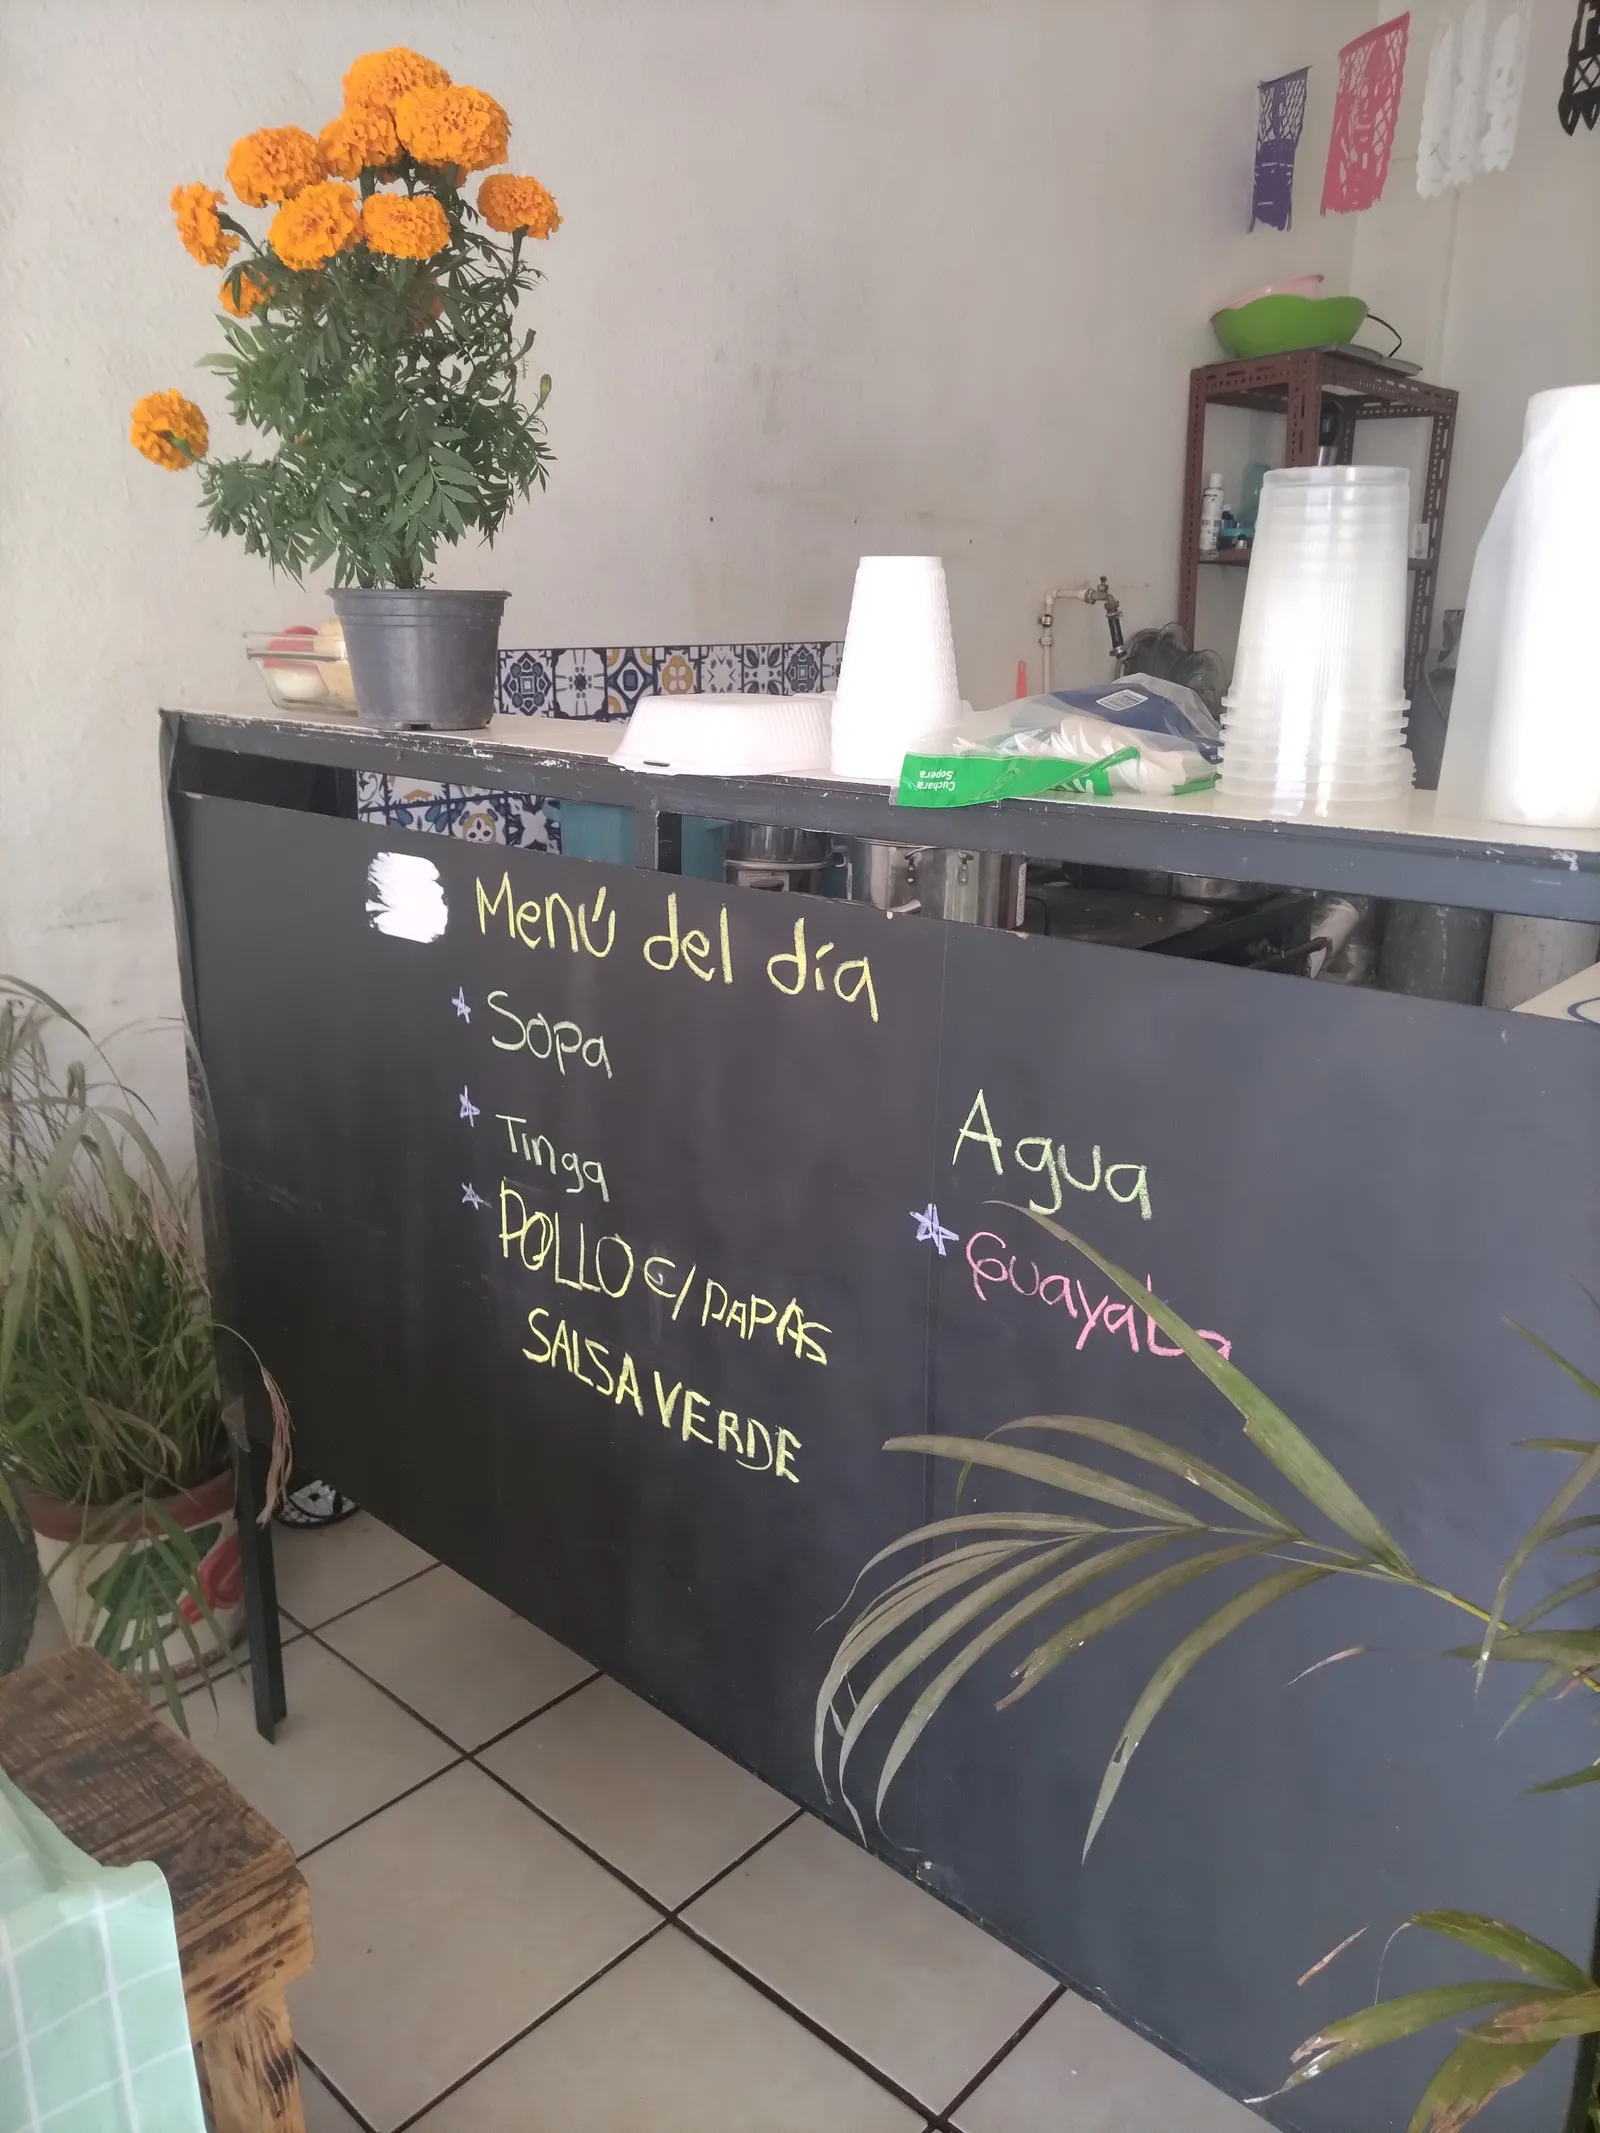 Menú del día
Sopa
Tinga
POLLO C/ PAPAS
SALSA VERDE
Agua
Guayaba
Cuchara
Sopera